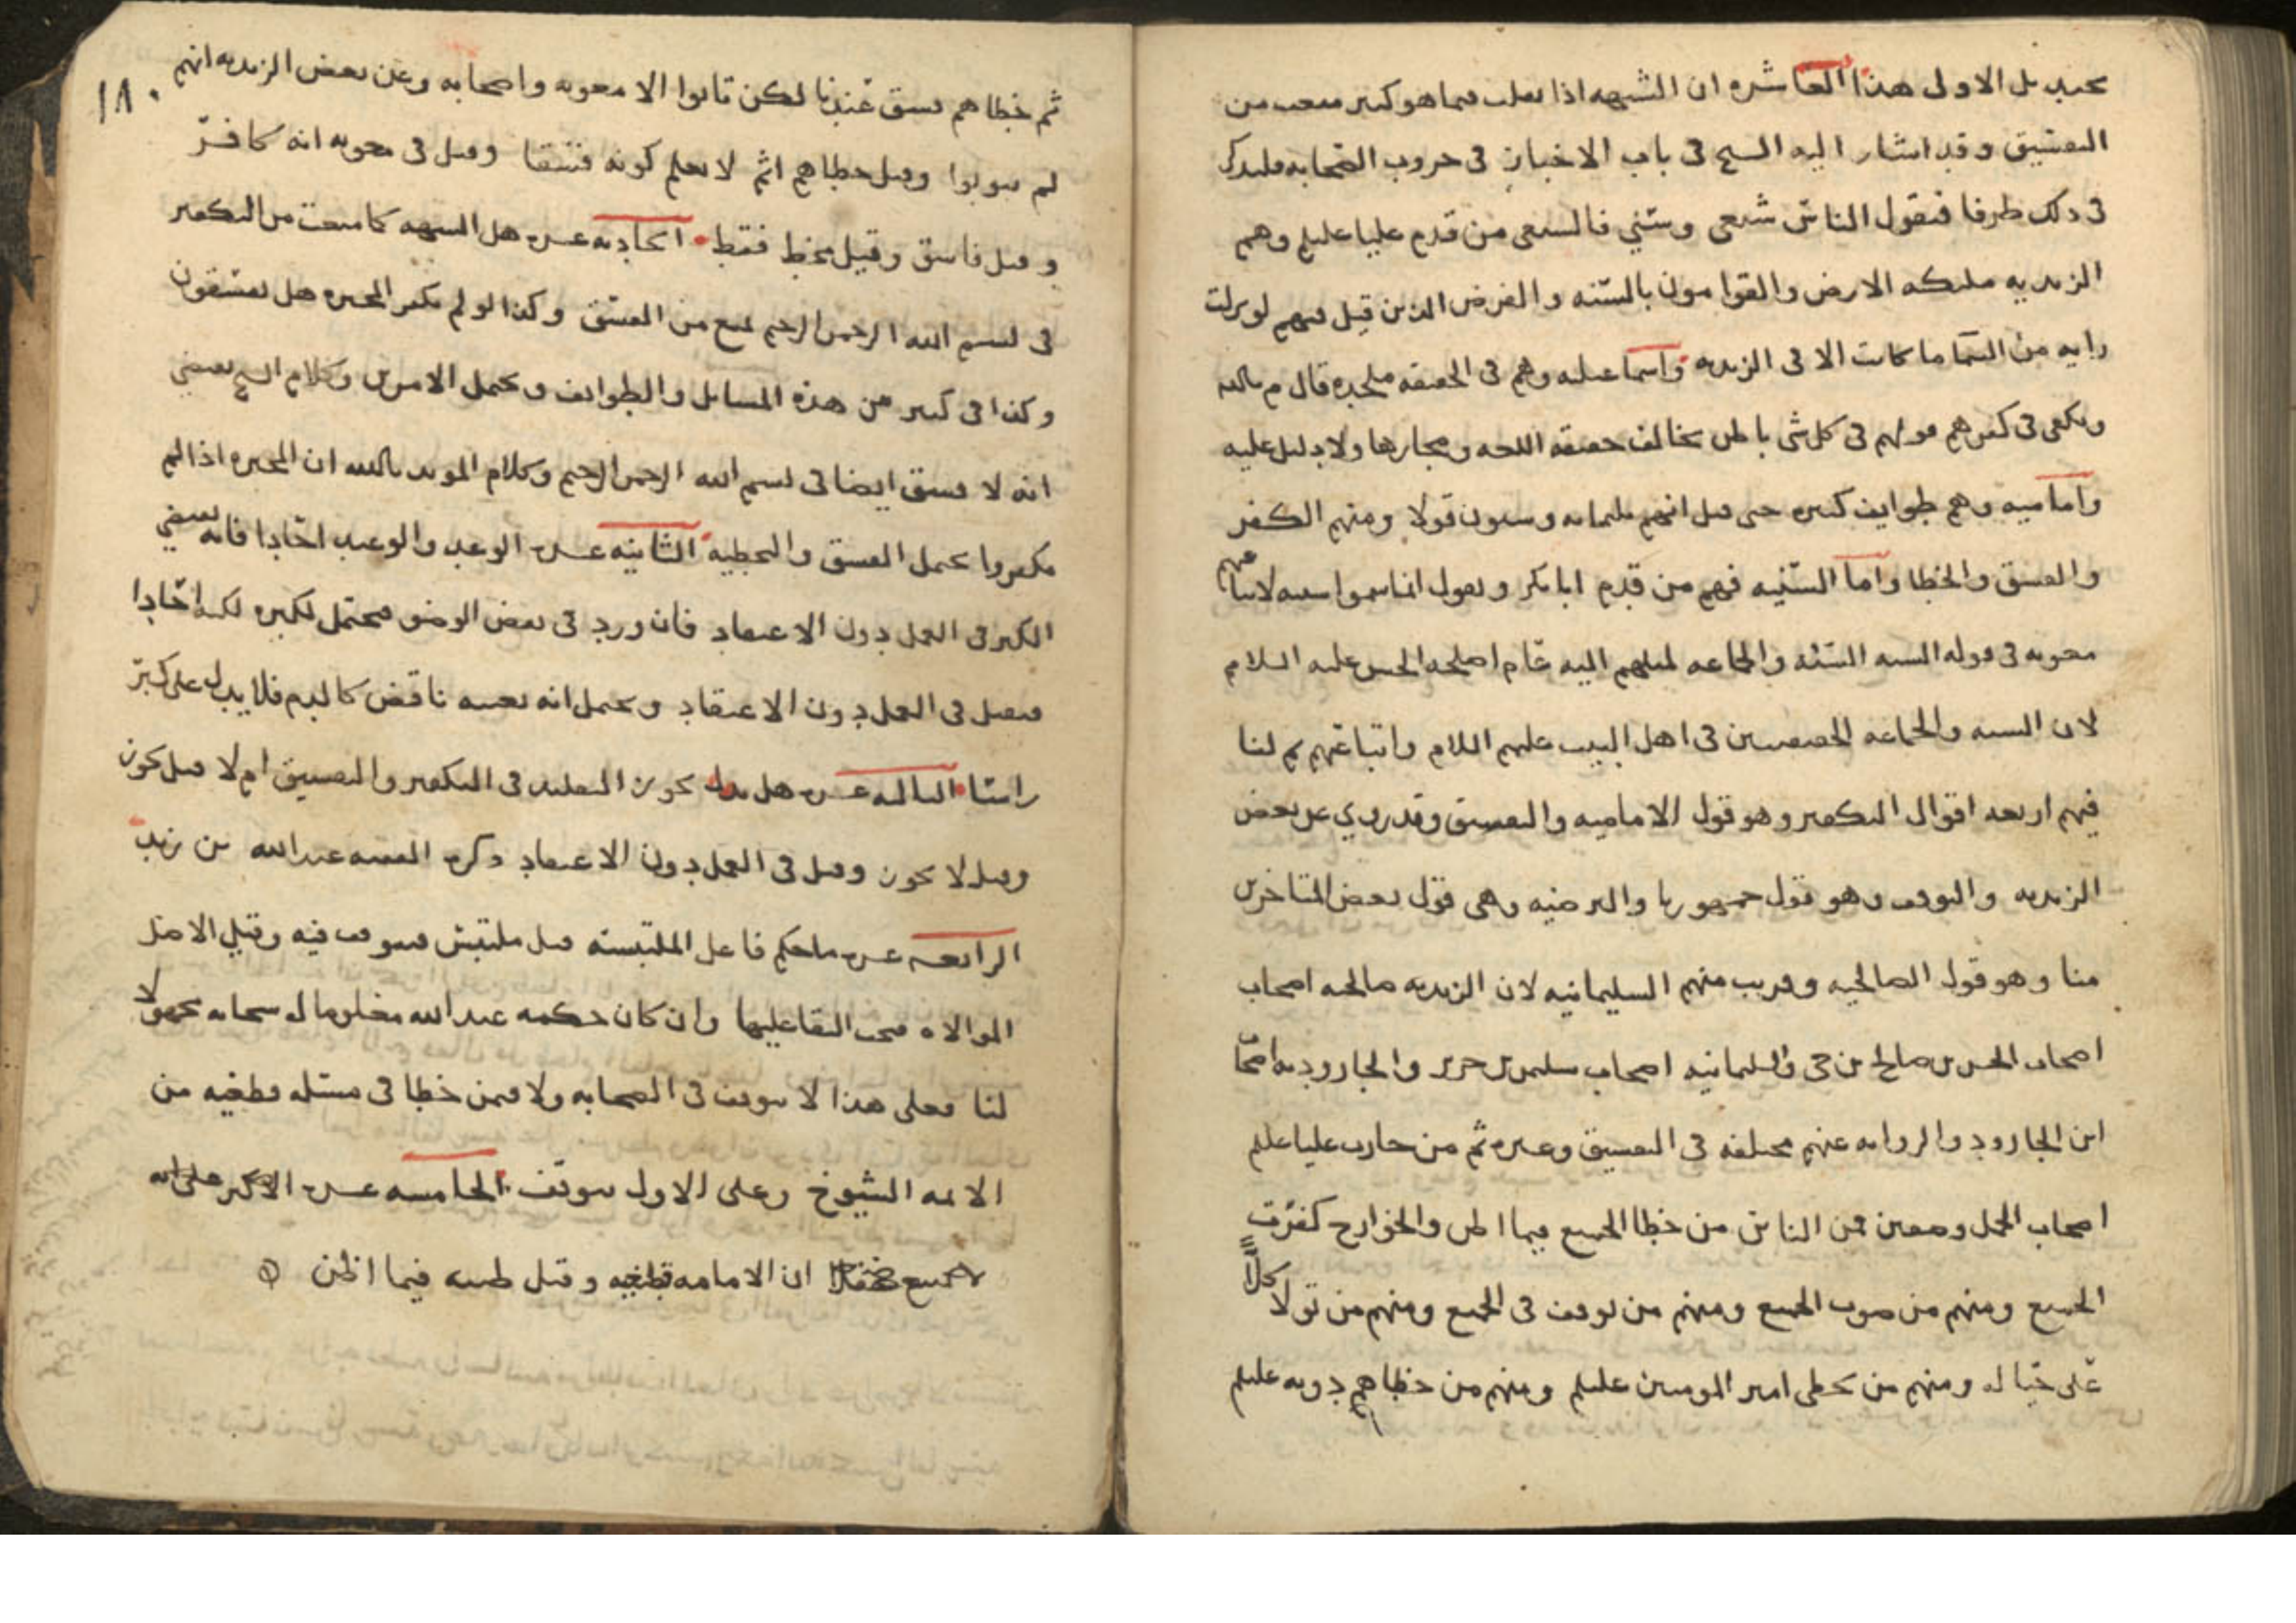 بل الاولى هذا العاشره ان الشبهه اذا فيما هو كبير من
التفسيق وقد اشار اليه الشيخ فى باب الاخبار فى حروب الصحابه فليذكر
فى ذلك طرفا فنقول الناس شيعى وسني فالشيعى من قدم عليا عليلم وهم
الزيديه ملئكه الارض والقوامون بالسنه والفرض الذين قيل فيهم لو نزلت
رايه من السما ما كانت الا فى الزيديه واسماعيليه وهم فى الحقيقه ملحده قال م بالله
ويكفى فى كفرهم قولهم فى كل شى باطن يخالف حقيقه اللغه ومجازها ولا دليل عليه
واماميه وهم طوايف كثيره حتى قيل انهم ثلثمايه وستون قولا ومنهم الكفر
والفسق والخطا واما السنيه فهم من قدم ابا بكر ونقول انما سموا سنيه
معويه فى قوله السنه السنه والجماعه لميلهم اليه عام اصلحه الحسن عليه السلام
لان السنه والجماعه الحقيقيين فى اهل البيت عليهم السلام واتباعهم ثم لنا
فيهم اربعه اقوال التكفير وهو قول الاماميه والتفسيق وقد روي عن بعض
الزيديه والتوقف وهو قول جمهورنا والترضيه وهى قول بعض المتاخرين
منا وهو قول الصالحيه وقريب منهم السليمانيه لان الزيديه صالحيه اصحاب
اصحاب الحسن بن صالح بن حى والسليمانيه اصحاب سليمن بن جرير والجاروديه اصحاب
ابن الجارود والروايه عنهم مختلفه فى التفسيق وغيره ثم من حارب عليا عليلم
اصحاب الجمل وصفين فمن الناس من خطا الجميع فيما اظن والخوارج كفرت
الجميع ومنهم من صوب الجميع ومنهم من توقف فى الجميع ومنهم من تولا كلا
على حياله ومنهم من يخطى امير المومنين عليلم ومنهم من خطاهم دونه عليلم
١٨٠
ثم خطاهم فسق عندنا لكن تابوا الا معويه واصحابه وعن بعض الزيديه انهم
لم يتوبوا وقيل خطاهم اثم لا يعلم كونه فسقا وقيل فى معويه انه كافر
وقيل فاسق وقيل مخط فقط الحاديه عشره هل الشبهه كما منعت من التكفير
فى بسم الله الرحمن الرحيم تمنع من الفسق وكذا لو لم تكفر المجبره هل يفسقون
وكذا فى كثير من هذه المسايل والطوايف ويحتمل الامرين وكلام الشيخ يقضي
انه لا فسق ايضا فى بسم الله الرحمن الرحيم وكلام المويد بالله ان المجبره اذا لم
يكفروا يحتمل الفسق والتخطيه الثانيه عشره الوعد والوعيد احادا فانه يقضي
الكبر فى العمل دون الاعتقاد فان ورد فى بعض الوضو محتمل لكبره لكنه احادا
فيقبل فى العمل دون الاعتقاد ويحتمل انه نفسه ناقض كالدم فلا يدل على كبر
راسا الثالثه عشره هل يجوز التقليد فى التكفير والتفسيق ام لا قيل يجوز
وقيل لا يجوز وقيل فى العمل دون الاعتقاد ذكره الفقيه عبدالله بن زيد
الرابعه عشره ما حكم فاعل الملتبسه قيل ملتبس فيتوقف فيه وقيل الاصل
الموالاه فيجب البقا عليها وان كان حكمه عند الله معلوما له سبحانه مجهولا
لنا فعلى هذا لا نتوقف فى الصحابه ولا فيمن خطا فى مسئله قطعيه من
الائمه الشيوخ وعلى الاول نتوقف الخامسه عشره الاكثر على انه
ان الامامه قطعيه وقيل ظنيه فيما اظن